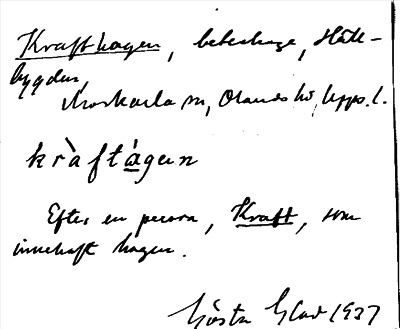 Krafthagen, beteshage, Häll-
bygden,
Morkarla sn, Olands hd, Upps. l.
kràftágen
Efter en person, Kraft, som
innehaft hagen.
Gösta Glad 1937